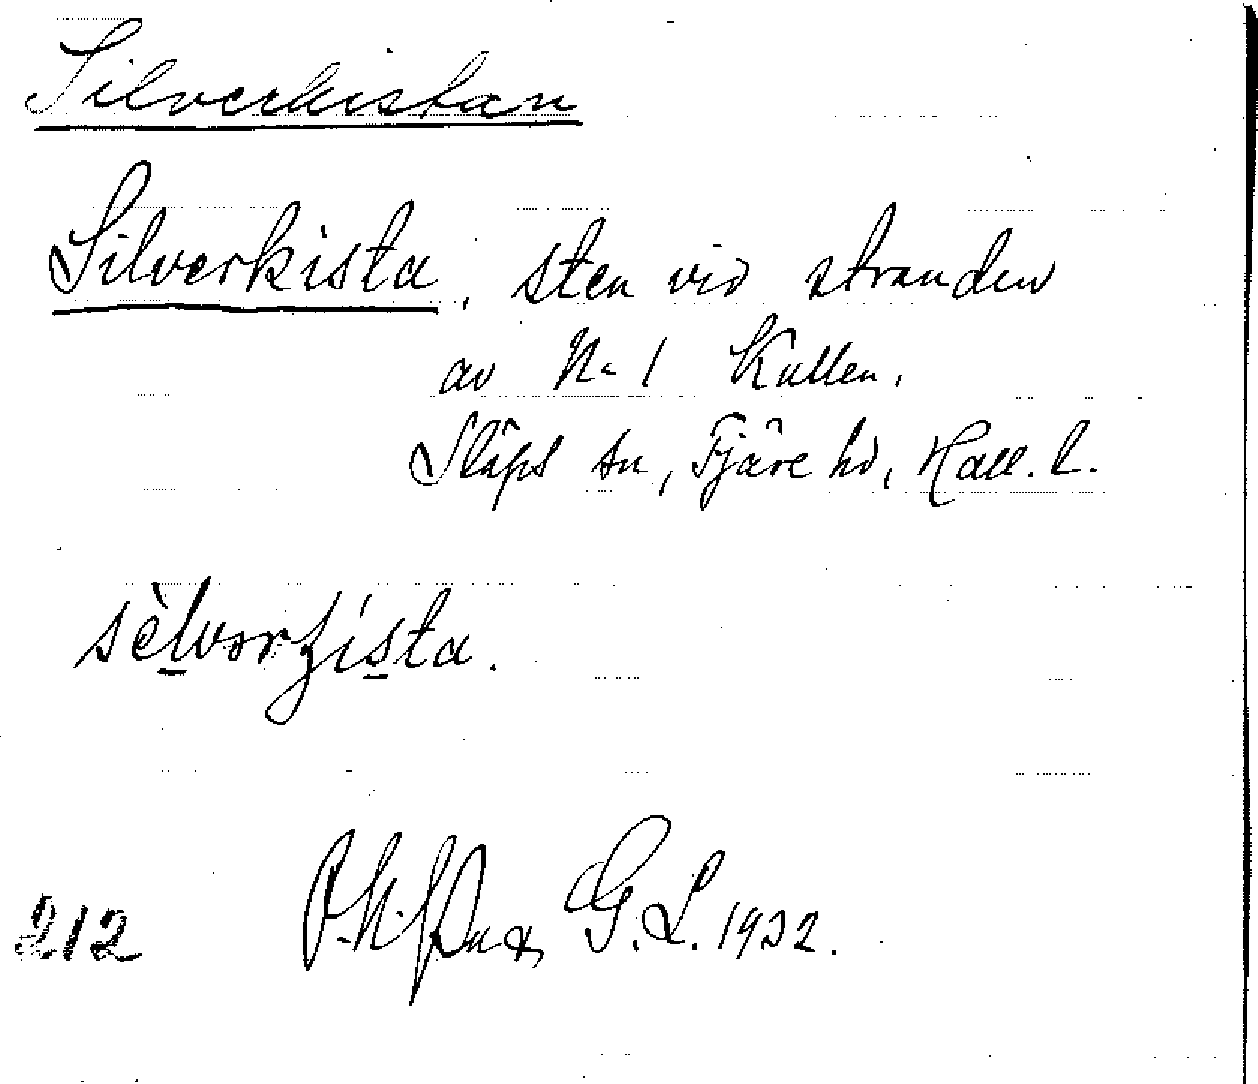 Silverkistan
Silverkista, sten vid stranden
av Nr 1 Kullen.
Släps sn, Fjäre hd, Hall. l.
sèlvorʒista.
212 G. L. 1932.